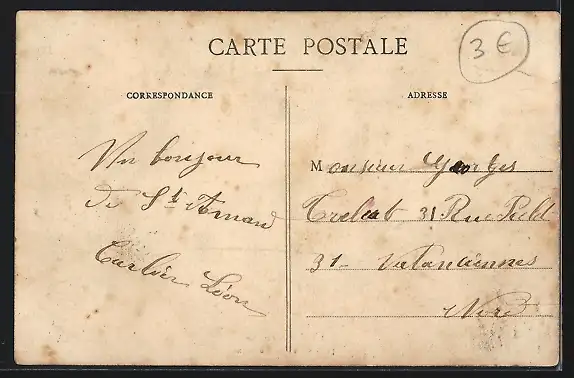 CARTE POSTALE
3 €
CORRESPONDANCE
ADRESSE
Un bonjour
de St Amand
Carlier Léon
Monsieur Georges
Trelcat 31 Rue
31 - Valanciennes
Nord